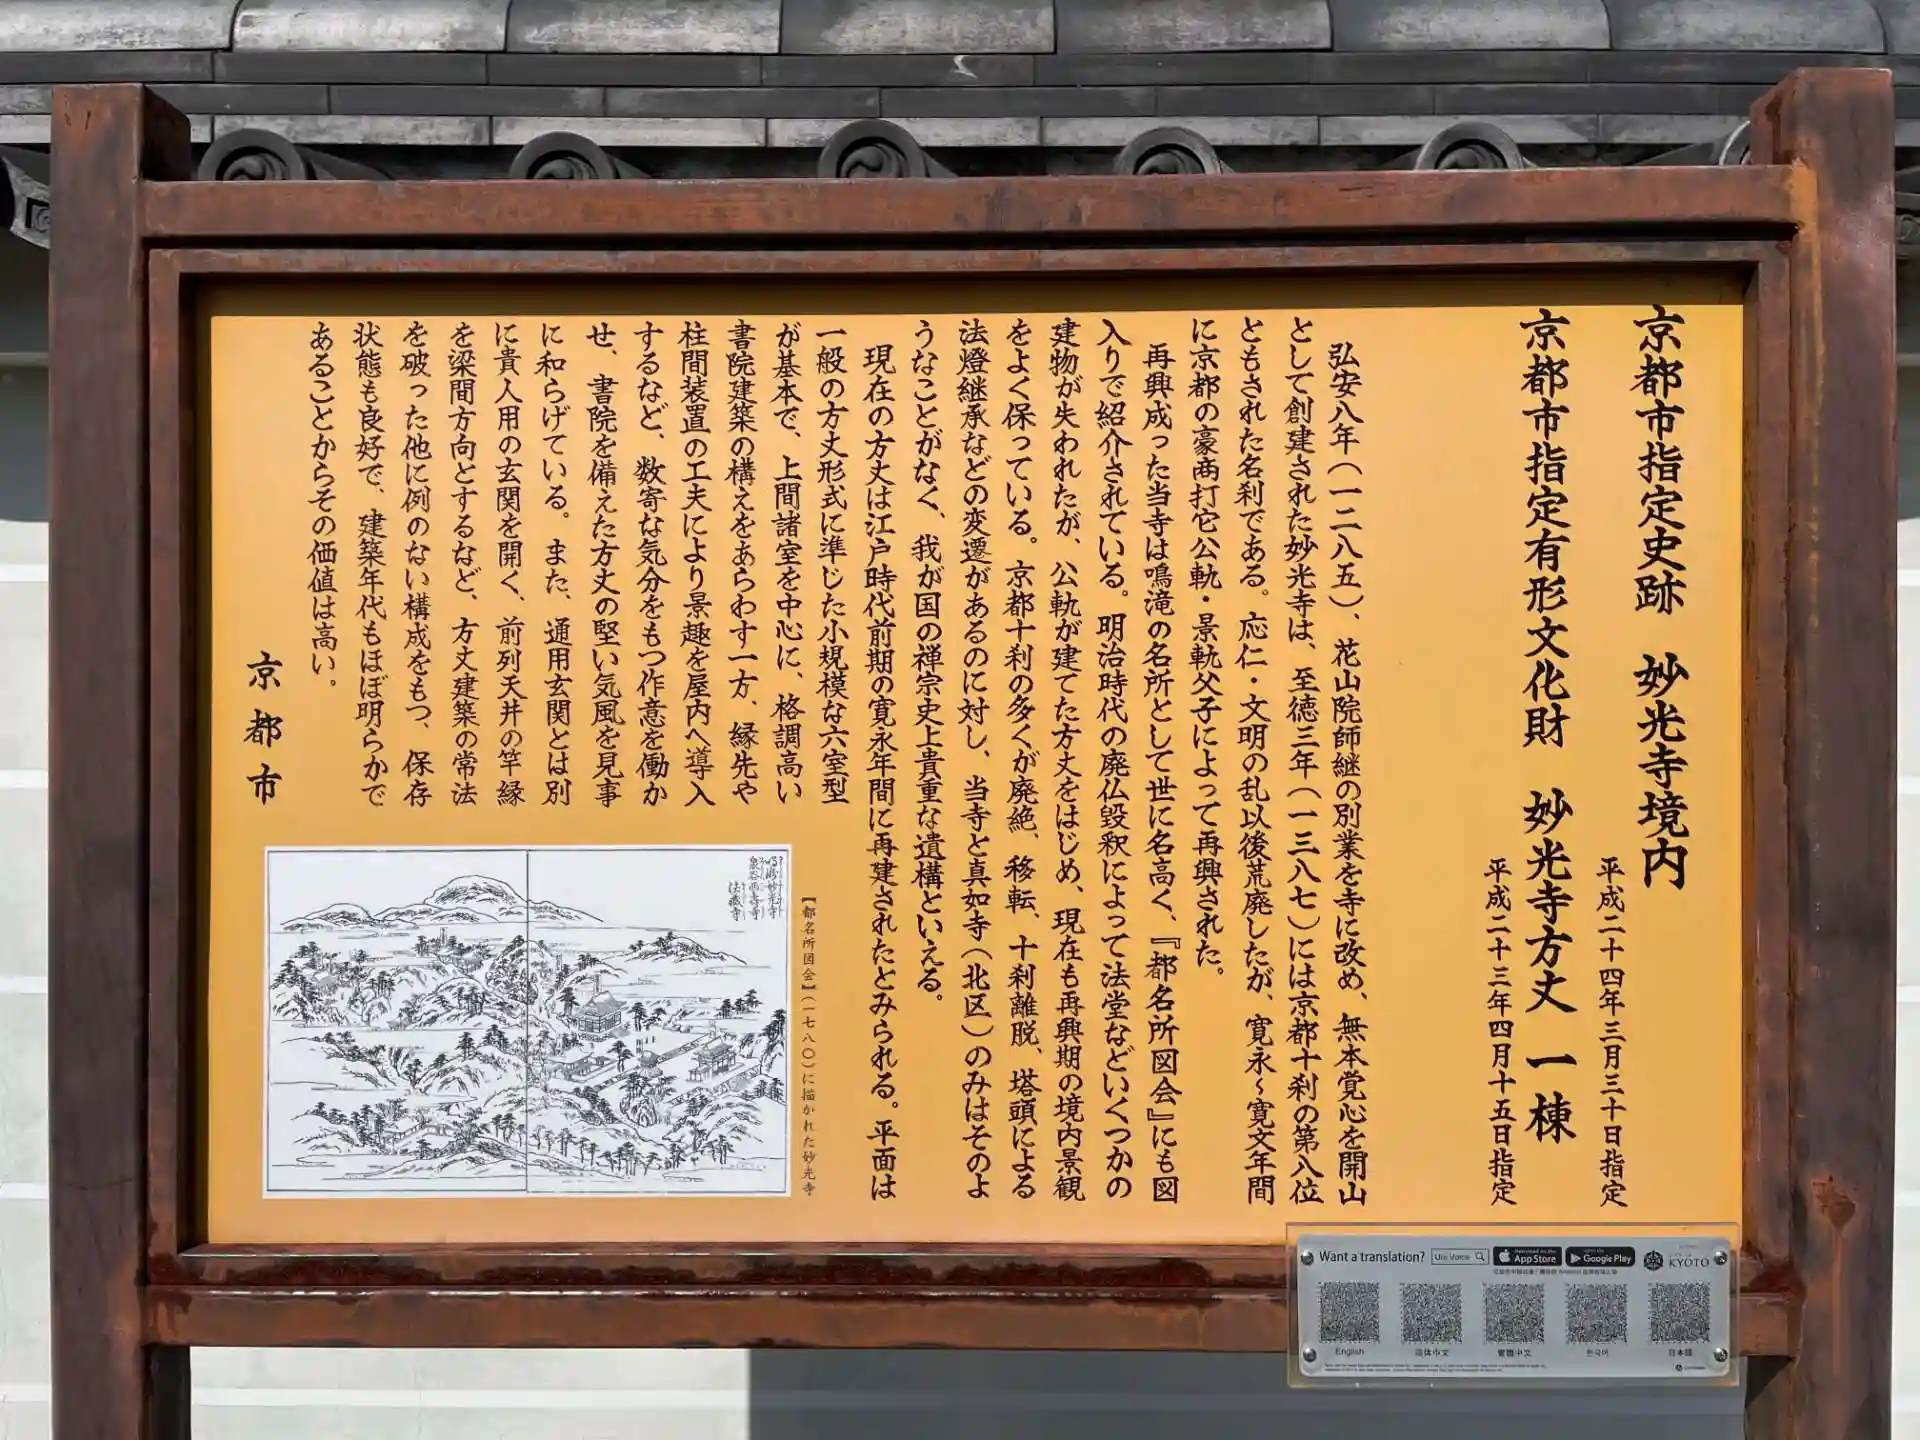 京都市指定史跡　妙光寺境内
平成二十四年三月三十日指定
京都市指定有形文化財　妙光寺方丈　一棟
平成二十三年四月十五日指定
弘安八年（一二八五）、花山院師継の別業を寺に改め、無本覚心を開山
として創建された妙光寺は、至徳三年（一三八七）には京都十刹の第八位
ともされた名刹である。応仁・文明の乱以後荒廃したが、寛永～寛文年間
に京都の豪商打它公軌・景軌父子によって再興された。
再興成った当寺は鳴滝の名所として世に名高く、『都名所図会』にも図
入りで紹介されている。明治時代の廃仏毀釈によって法堂などいくつかの
建物が失われたが、公軌が建てた方丈をはじめ、現在も再興期の境内景観
をよく保っている。京都十刹の多くが廃絶、移転、十刹離脱、塔頭による
法燈継承などの変遷があるのに対し、当寺と真如寺（北区）のみはそのよ
うなことがなく、我が国の禅宗史上貴重な遺構といえる。
現在の方丈は江戸時代前期の寛永年間に再建されたとみられる。平面は
一般の方丈形式に準じた小規模な六室型
が基本で、上間諸室を中心に、格調高い
書院建築の構えをあらわす一方、縁先や
柱間装置の工夫により景趣を屋内へ導入
するなど、数寄な気分をもつ作意を働か
せ、書院を備えた方丈の堅い気風を見事
に和らげている。また、通用玄関とは別
に貴人用の玄関を開く、前列天井の竿縁
を梁間方向とするなど、方丈建築の常法
を破った他に例のない構成をもつ、保存
状態も良好で、建築年代もほぼ明らかで
あることからその価値は高い。
京都市
『都名所図会』（一七八〇）に描かれた妙光寺
鳴瀧妙光寺
泉谷西壽寺
法蔵寺
Want a translation?
Uni Voice
Download on the App Store
Google Play
KYOTO
English
简体中文
繁體中文
한국어
日本語